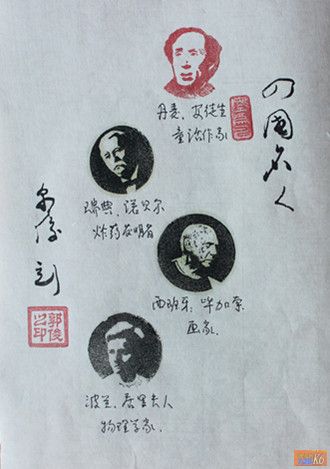 四国名人
丹麦、安徒生
童话作家
瑞典、诺贝尔
炸药发明者
西班牙、毕加索
画家、
波兰、居里夫人
物理学家、
郭俊
之印